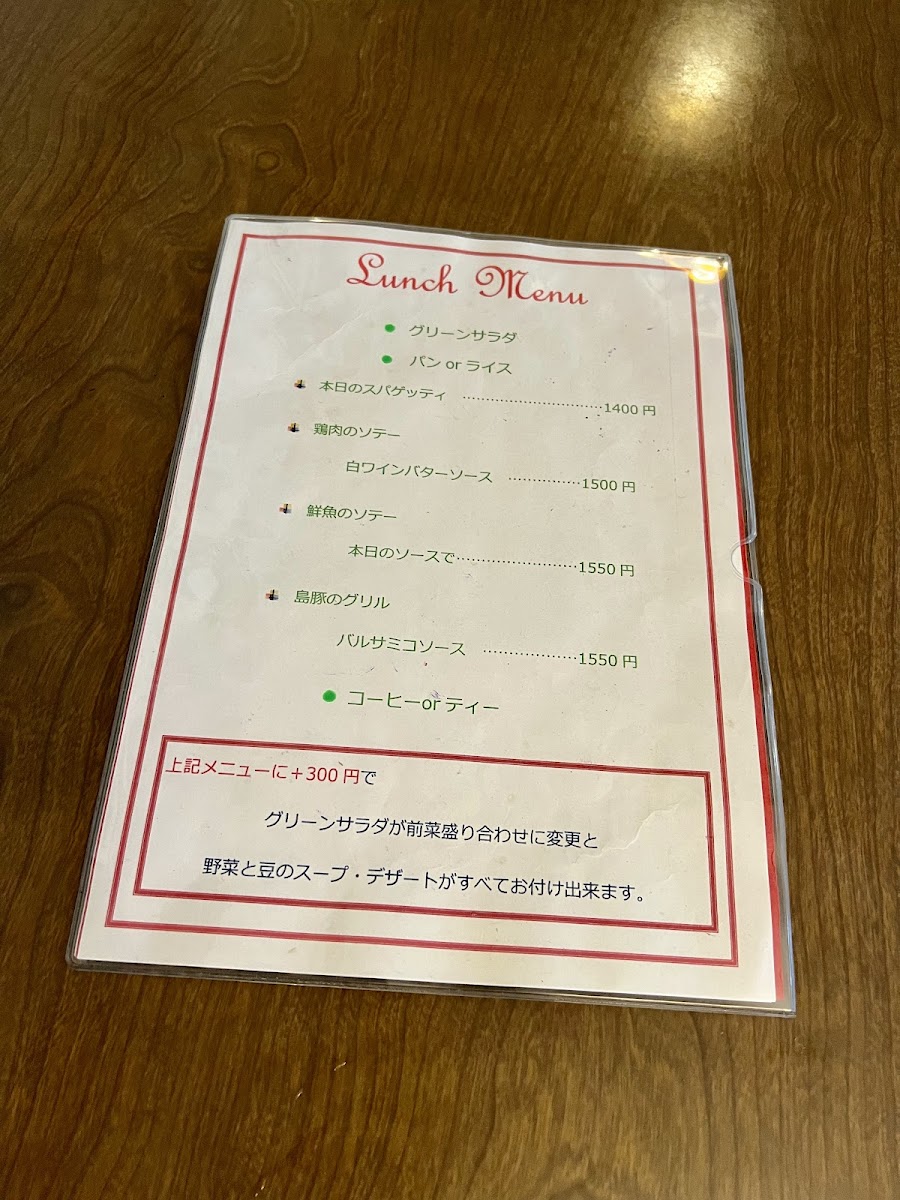 Lunch Menu
グリーンサラダ
パン or ライス
本日のスパゲッティ ……………………………1400 円
鶏肉のソテー
白ワインバターソース ………………1500 円
鮮魚のソテー
本日のソースで………………………1550 円
島豚のグリル
バルサミコソース …………………1550 円
コーヒーor ティー
上記メニューに＋300 円で
グリーンサラダが前菜盛り合わせに変更と
野菜と豆のスープ・デザートがすべてお付け出来ます。